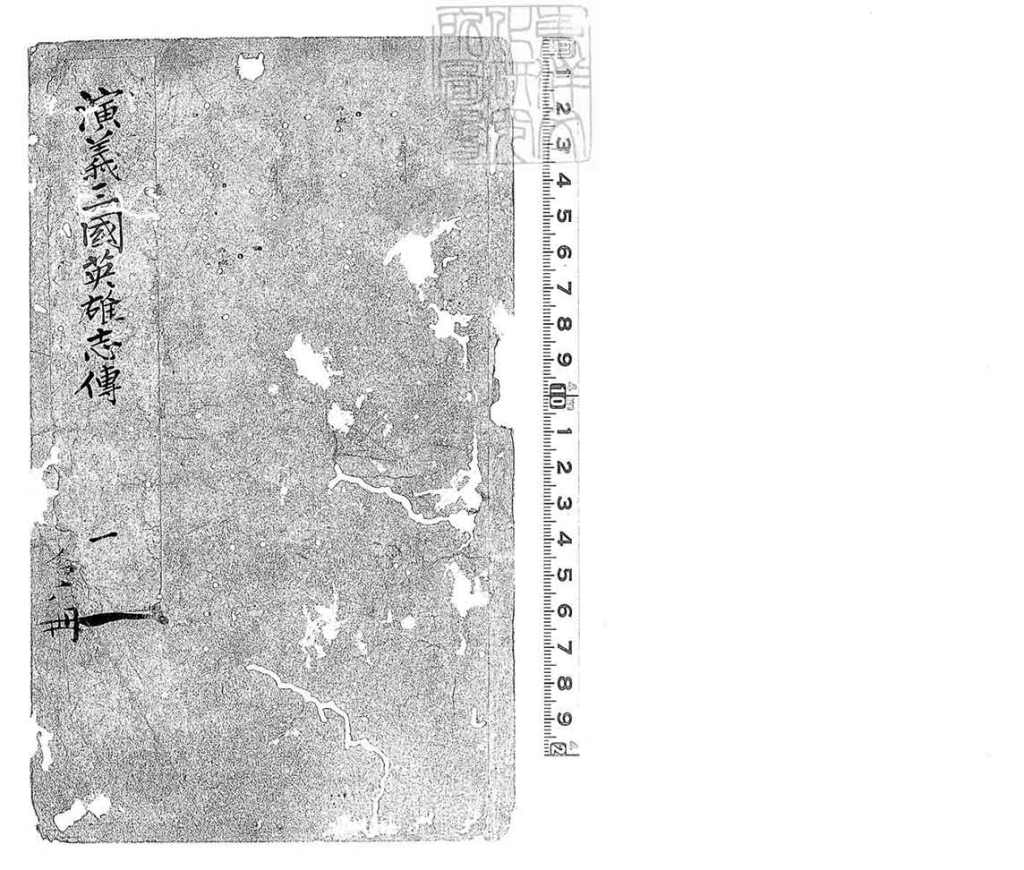 演義三國英雄志傳
一
共六冊
1 2 3 4 5 6 7 8 9 10 1 2 3 4 5 6 7 8 9